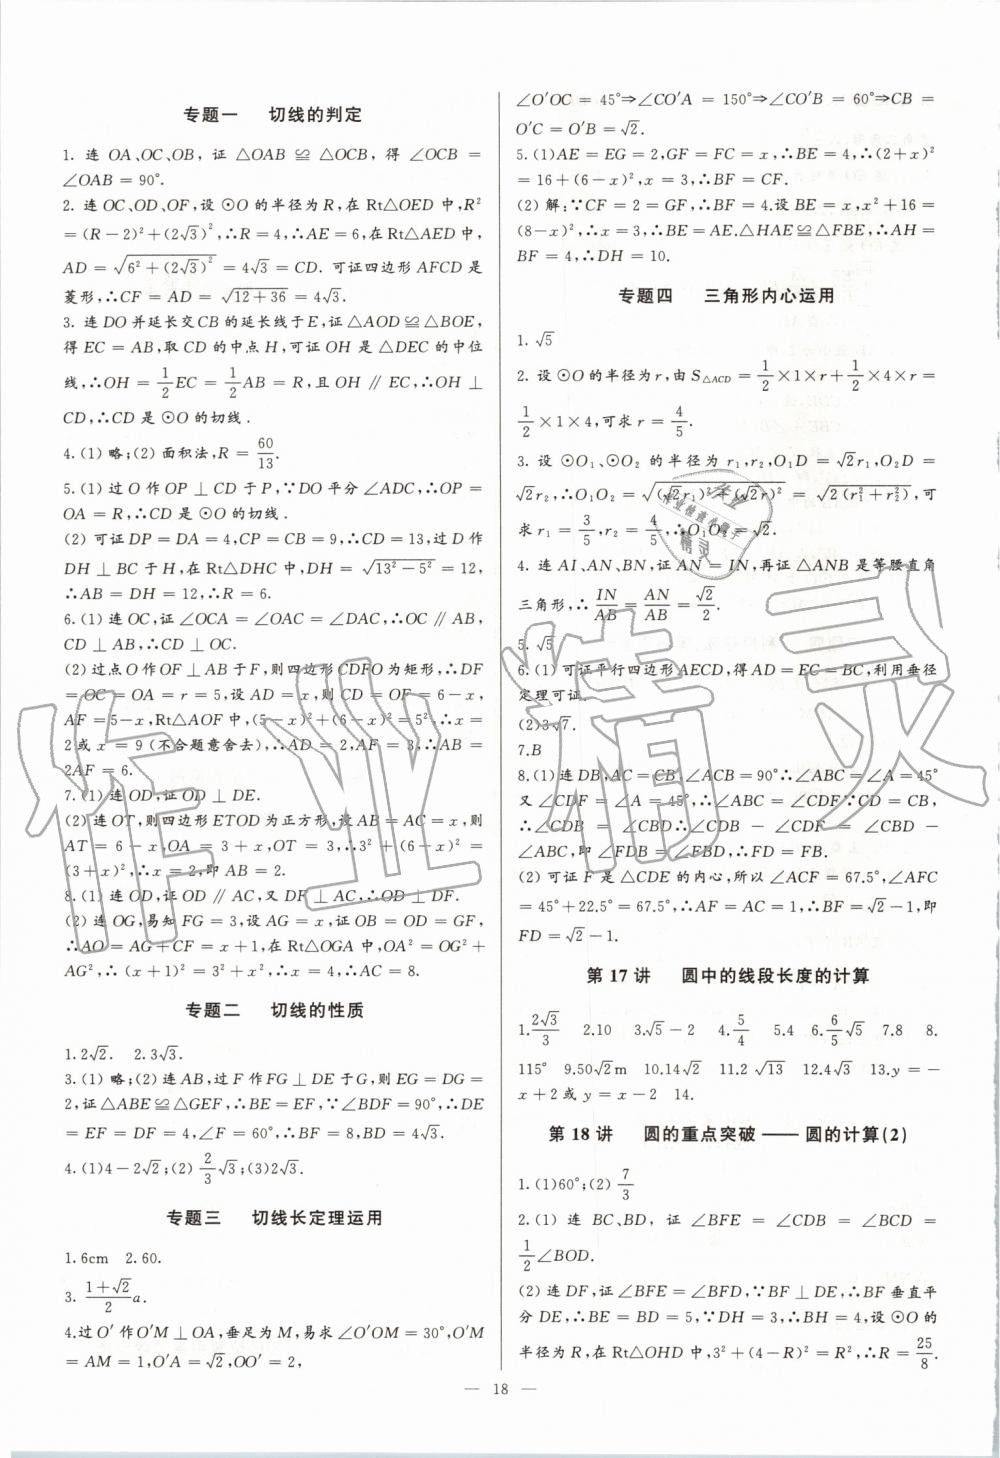 专题一 切线的判定
1. 连 OA、OC、OB，证 △OAB ≌ △OCB，得 ∠OCB =
∠OAB = 90°.
2. 连 OC、OD、OF，设 ⊙O 的半径为 R，在 Rt△OED 中，R²
= (R－2)²＋(2√3)²，∴R = 4，∴AE = 6，在 Rt△AED 中，
AD = √(6²＋(2√3)²) = 4√3 = CD. 可证四边形 AFCD 是
菱形，∴CF = AD = √(12＋36) = 4√3.
3. 连 DO 并延长交 CB 的延长线于 E，证 △AOD ≌ △BOE，
得 EC = AB，取 CD 的中点 H，可证 OH 是 △DEC 的中位
线，∴OH = 1/2 EC = 1/2 AB = R，且 OH ∥ EC，∴OH ⊥
CD，∴CD 是 ⊙O 的切线.
4. (1) 略；(2) 面积法，R = 60/13.
5. (1) 过 O 作 OP ⊥ CD 于 P，∵DO 平分 ∠ADC，∴OP =
OA = R，∴CD 是 ⊙O 的切线.
(2) 可证 DP = DA = 4，CP = CB = 9，∴CD = 13，过 D 作
DH ⊥ BC 于 H，在 Rt△DHC 中，DH = √(13²－5²) = 12，
∴AB = DH = 12，∴R = 6.
6. (1) 连 OC，证 ∠OCA = ∠OAC = ∠DAC，∴OC ∥ AB，
CD ⊥ AB，∴CD ⊥ OC.
(2) 过点 O 作 OF ⊥ AB 于 F，则四边形 CDFO 为矩形，∴DF
= OC = OA = r = 5，设 AD = x，则 CD = OF = 6－x，
AF = 5－x，Rt△AOF 中，(5－x)²＋(6－x)² = 5²，∴x =
2 或 x = 9 (不合题意舍去)，∴AD = 2，AF = 3，∴AB =
2AF = 6.
7. (1) 连 OD，证 OD ⊥ DE.
(2) 连 OT，则四边形 ETOD 为正方形，设 AB = AC = x，则
AT = 6－x，OA = 3＋x，OT = 3，∴3²＋(6－x)² =
(3＋x)²，∴x = 2，即 AB = 2.
8. (1) 连 OD，证 OD ∥ AC，又 DF ⊥ AC，∴OD ⊥ DF.
(2) 连 OG，易知 FG = 3，设 AG = x，证 OB = OD = GF，
∴AO = AG＋CF = x＋1，在 Rt△OGA 中，OA² = OG²＋
AG²，∴(x＋1)² = 3²＋x²，∴x = 4，∴AC = 8.
专题二 切线的性质
1. 2√2. 2. 3√3.
3. (1) 略；(2) 连 AB，过 F 作 FG ⊥ DE 于 G，则 EG = DG =
2，证 △ABE ≌ △GEF，∴BE = EF，∵∠BDF = 90°，∴DE
= EF = DF = 4，∠F = 60°，∴BF = 8，BD = 4√3.
4. (1) 4－2√2；(2) 2/3 √3；(3) 2√3.
专题三 切线长定理运用
1. 6cm 2. 60.
3. (1＋√2)/2 a.
4. 过 O′ 作 O′M ⊥ OA，垂足为 M，易求 ∠O′OM = 30°，O′M
= AM = 1，O′A = √2，OO′ = 2，
∠O′OC = 45°⇒∠CO′A = 150°⇒∠CO′B = 60°⇒CB =
O′C = O′B = √2.
5. (1) AE = EG = 2，GF = FC = x，∴BE = 4，∴(2＋x)²
= 16＋(6－x)²，x = 3，∴BF = CF.
(2) 解：∵CF = 2 = GF，∴BF = 4. 设 BE = x，x²＋16 =
(8－x)²，∴x = 3，∴BE = AE. △HAE ≌ △FBE，∴AH =
BF = 4，∴DH = 10.
专题四 三角形内心运用
1. √5
2. 设 ⊙O 的半径为 r，由 S△ACD = 1/2 ×1×r＋1/2 ×4×r =
1/2 ×1×4，可求 r = 4/5.
3. 设 ⊙O₁、⊙O₂ 的半径为 r₁，r₂，O₁D = √2r₁，O₂D =
√2r₂，∴O₁O₂ = √((√2r₁)²＋(√2r)²) = √(2(r₁²＋r₂²))，可
求 r₁ = 3/5，r₂ = 4/5，∴O₁O₂ = √2.
4. 连 AI、AN、BN，证 AN = IN，再证 △ANB 是等腰直角
三角形，∴IN/AB = AN/AB = √2/2.
5. √5
6. (1) 可证平行四边形 AECD，得 AD = EC = BC，利用垂径
定理可证.
(2) 3√7.
7. B
8. (1) 连 DB，AC = CB，∠ACB = 90°∴∠ABC = ∠A = 45°
又 ∠CDF = ∠A = 45°，∴∠ABC = ∠CDF∵CD = CB，
∴∠CDB = ∠CBD∴∠CDB － ∠CDF = ∠CBD －
∠ABC，即 ∠FDB = ∠FBD，∴FD = FB.
(2) 可证 F 是 △CDE 的内心，所以 ∠ACF = 67.5°，∠AFC
= 45°＋22.5° = 67.5°，∴AF = AC = 1，∴BF = √2－1，即
FD = √2－1.
第 17 讲 圆中的线段长度的计算
1. 2√3/3 2. 10 3. √5－2 4. 5/4 5. 4 6. 6/5 √5 7. 8 8.
115° 9. 50√2m 10. 14√2 11. 2√13 12. 4√3 13. y =－
x＋2 或 y = x－2 14.
第 18 讲 圆的重点突破 —— 圆的计算(2)
1. (1) 60°；(2) 7/3
2. (1) 连 BC、BD，证 ∠BFE = ∠CDB = ∠BCD =
1/2 ∠BOD.
(2) 连 DF，证 ∠BFE = ∠BFD，∵BF ⊥ DE，∴BF 垂直平
分 DE，∴BE = BD = 5，∵DH = 3，∴BH = 4，设 ⊙O 的
半径为 R，在 Rt△OHD 中，3²＋(4－R)² = R²，∴R = 25/8.
— 18 —
作业精灵